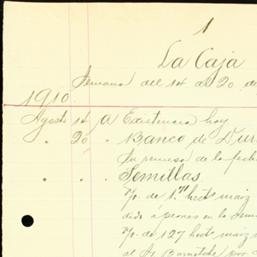 1
La Caja
Semana del 14 al 20 de
1910
Agosto 14 a Existencia hoy
" 20 " Banco de Dur
Su remesa de la fecha
" " " Semillas
v/o de 1 hect maiz
dado á peones en la Sem
v/o de 127 hect maiz
al Sr